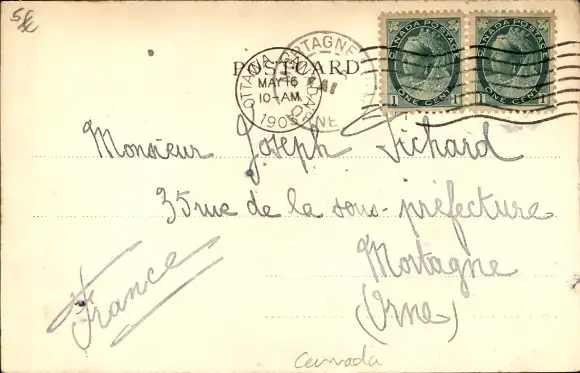 CANADA POSTAGE CANADA POSTAGE
ONE CENT ONE CENT
1 1 1 1
POSTCARD
OTTAWA CANADA
MAY 16
10-AM
1903
MORTAGNE
ORNE
Monsieur Joseph Pichard
35 rue de la sous-préfecture
Mortagne
(Orne)
France
Canada